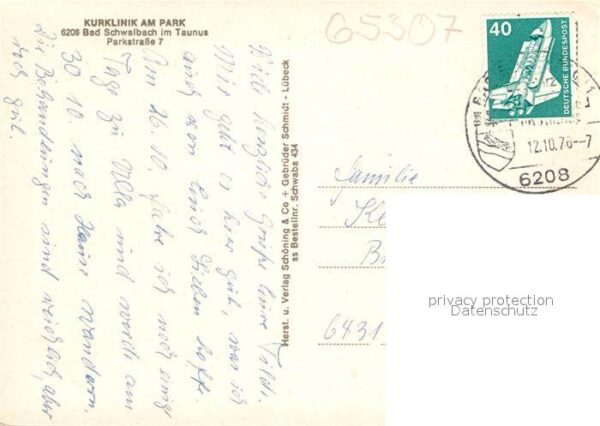 KURKLINIK AM PARK
6208 Bad Schwalbach im Taunus
Parkstraße 7
65307
40
DEUTSCHE BUNDESPOST
12.10.76--7
6208
Viele herzliche Grüße
Mir geht es hier gut, was ich
auch von
Am 26.10. fahre ich noch einige
Tage zu Ulla und werde am
30.10. nach Hause wandern.
Die Behandlungen sind reichlich aber
gut.
Herst. u. Verlag Schöning & Co + Gebrüder Schmidt - Lübeck
ss Bestellnr. Schwaba 434
Familie
6431
privacy protection
Datenschutz